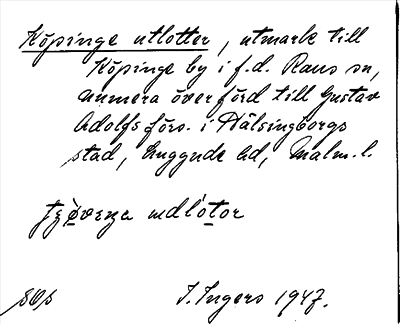 Köpinge utlotter, utmark till
Köpinge by i f.d. Raus sn,
numera överförd till Gustav
Adolfs förs. i Hälsingborgs
stad, Luggude hd, Malm. l.
sOs
I. Ingers 1947.